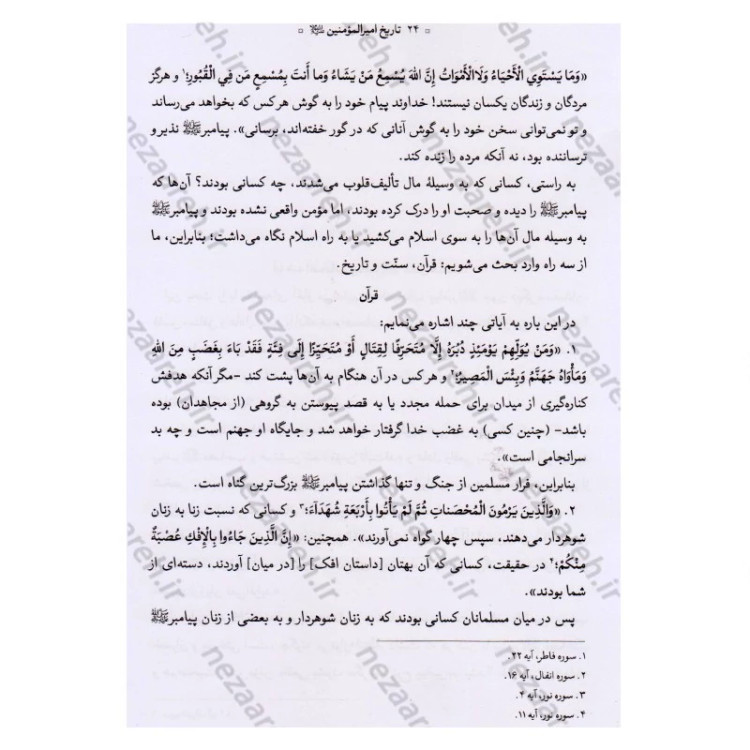 ۲۴ تاریخ امیرالمؤمنین ﷺ
«وَمَا يَسْتَوِي الْأَحْيَاءُ وَلَاالْأَمْوَاتُ إِنَّ اللهَ يُسْمِعُ مَنْ يَشَاءُ وَما أَنتَ بِمُسْمِعٍ مَن فِي الْقُبُورِ؛¹ و هرگز
مردگان و زندگان یکسان نیستند! خداوند پیام خود را به گوش هرکس که بخواهد می‌رساند
و تو نمی‌توانی سخن خود را به گوش آنانی که در گور خفته‌اند، برسانی». پیامبرﷺ نذیر و
ترساننده بود، نه آنکه مرده را زنده کند.
به راستی، کسانی که به وسیلهٔ مال تألیف‌قلوب می‌شدند، چه کسانی بودند؟ آن‌ها که
پیامبرﷺ را دیده و صحبت او را درک کرده بودند، اما مؤمن واقعی نشده بودند و پیامبرﷺ
به وسیله مال آن‌ها را به سوی اسلام می‌کشید یا به راه اسلام نگاه می‌داشت؛ بنابراین، ما
از سه راه وارد بحث می‌شویم: قرآن، سنّت و تاریخ.
قرآن
در این باره به آیاتی چند اشاره می‌نمایم:
۱. «وَمَنْ يُوَلِّهِمْ يَوْمَئِذٍ دُبُرَهُ إِلَّا مُتَحَرِّفًا لِقِتَالٍ أَوْ مُتَحَيِّزًا إِلَى فِئَةٍ فَقَدْ بَاءَ بِغَضَبٍ مِنَ اللهِ
وَمَأْوَاهُ جَهَنَّمُ وَبِئْسَ الْمَصِيرُ؛² و هرکس در آن هنگام به آن‌ها پشت کند -مگر آنکه هدفش
کناره‌گیری از میدان برای حمله مجدد یا به قصد پیوستن به گروهی (از مجاهدان) بوده
باشد- (چنین کسی) به غضب خدا گرفتار خواهد شد و جایگاه او جهنم است و چه بد
سرانجامی است».
بنابراین، فرار مسلمین از جنگ و تنها گذاشتن پیامبرﷺ بزرگ‌ترین گناه است.
۲. «وَالَّذِينَ يَرْمُونَ الْمُحْصَنَاتِ ثُمَّ لَمْ يَأْتُوا بِأَرْبَعَةِ شُهَدَاءَ؛³ و کسانی که نسبت زنا به زنان
شوهردار می‌دهند، سپس چهار گواه نمی‌آورند». همچنین: «إِنَّ الَّذِينَ جَاءُوا بِالْإِفْكِ عُصْبَةٌ
مِنْكُمْ؛⁴ در حقیقت، کسانی که آن بهتان [داستان افک] را [در میان] آوردند، دسته‌ای از
شما بودند».
پس در میان مسلمانان کسانی بودند که به زنان شوهردار و به بعضی از زنان پیامبرﷺ
۱. سوره فاطر، آیه ۲۲.
۲. سوره انفال، آیه ۱۶.
۳. سوره نور، آیه ۴.
۴. سوره نور، آیه ۱۱.
nezaareh.ir